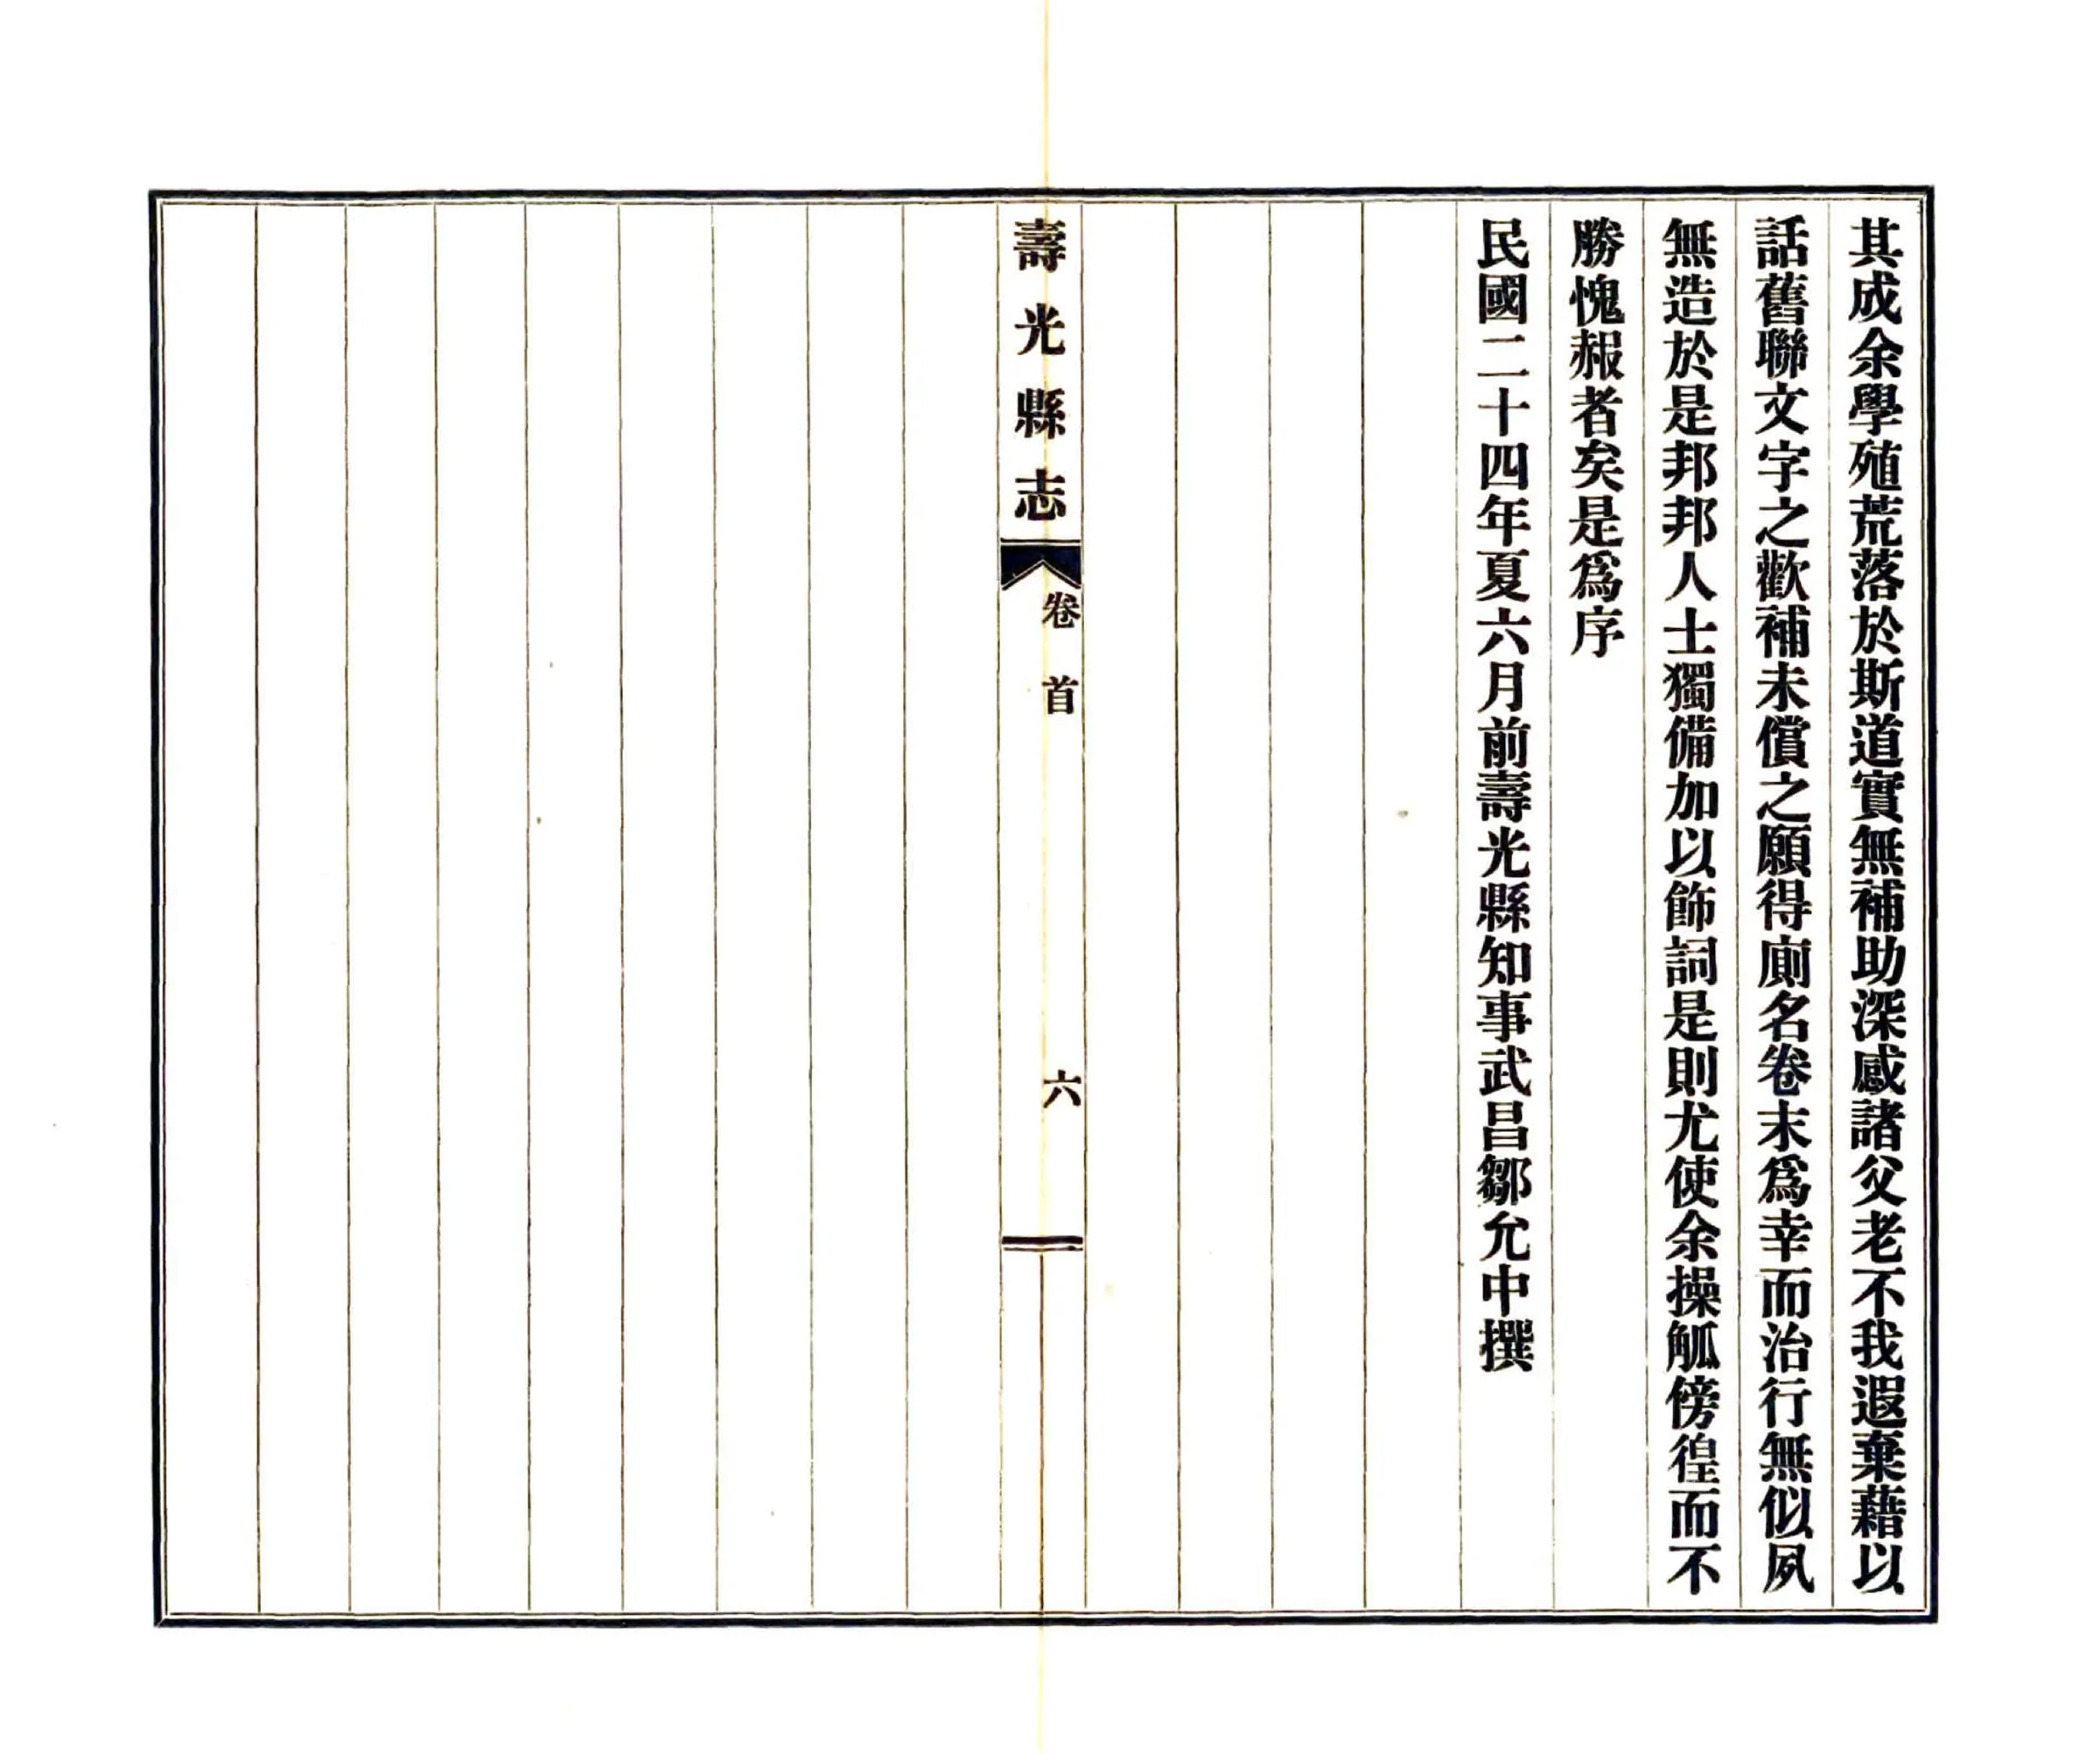 其成余學殖荒落於斯道實無補助深感諸父老不我遐棄藉以
話舊聯文字之歡補未償之願得廁名卷末爲幸而治行無似夙
無造於是邦邦人士獨備加以飾詞是則尤使余操觚傍徨而不
勝愧赧者矣是爲序
民國二十四年夏六月前壽光縣知事武昌鄒允中撰
壽光縣志
卷首
六